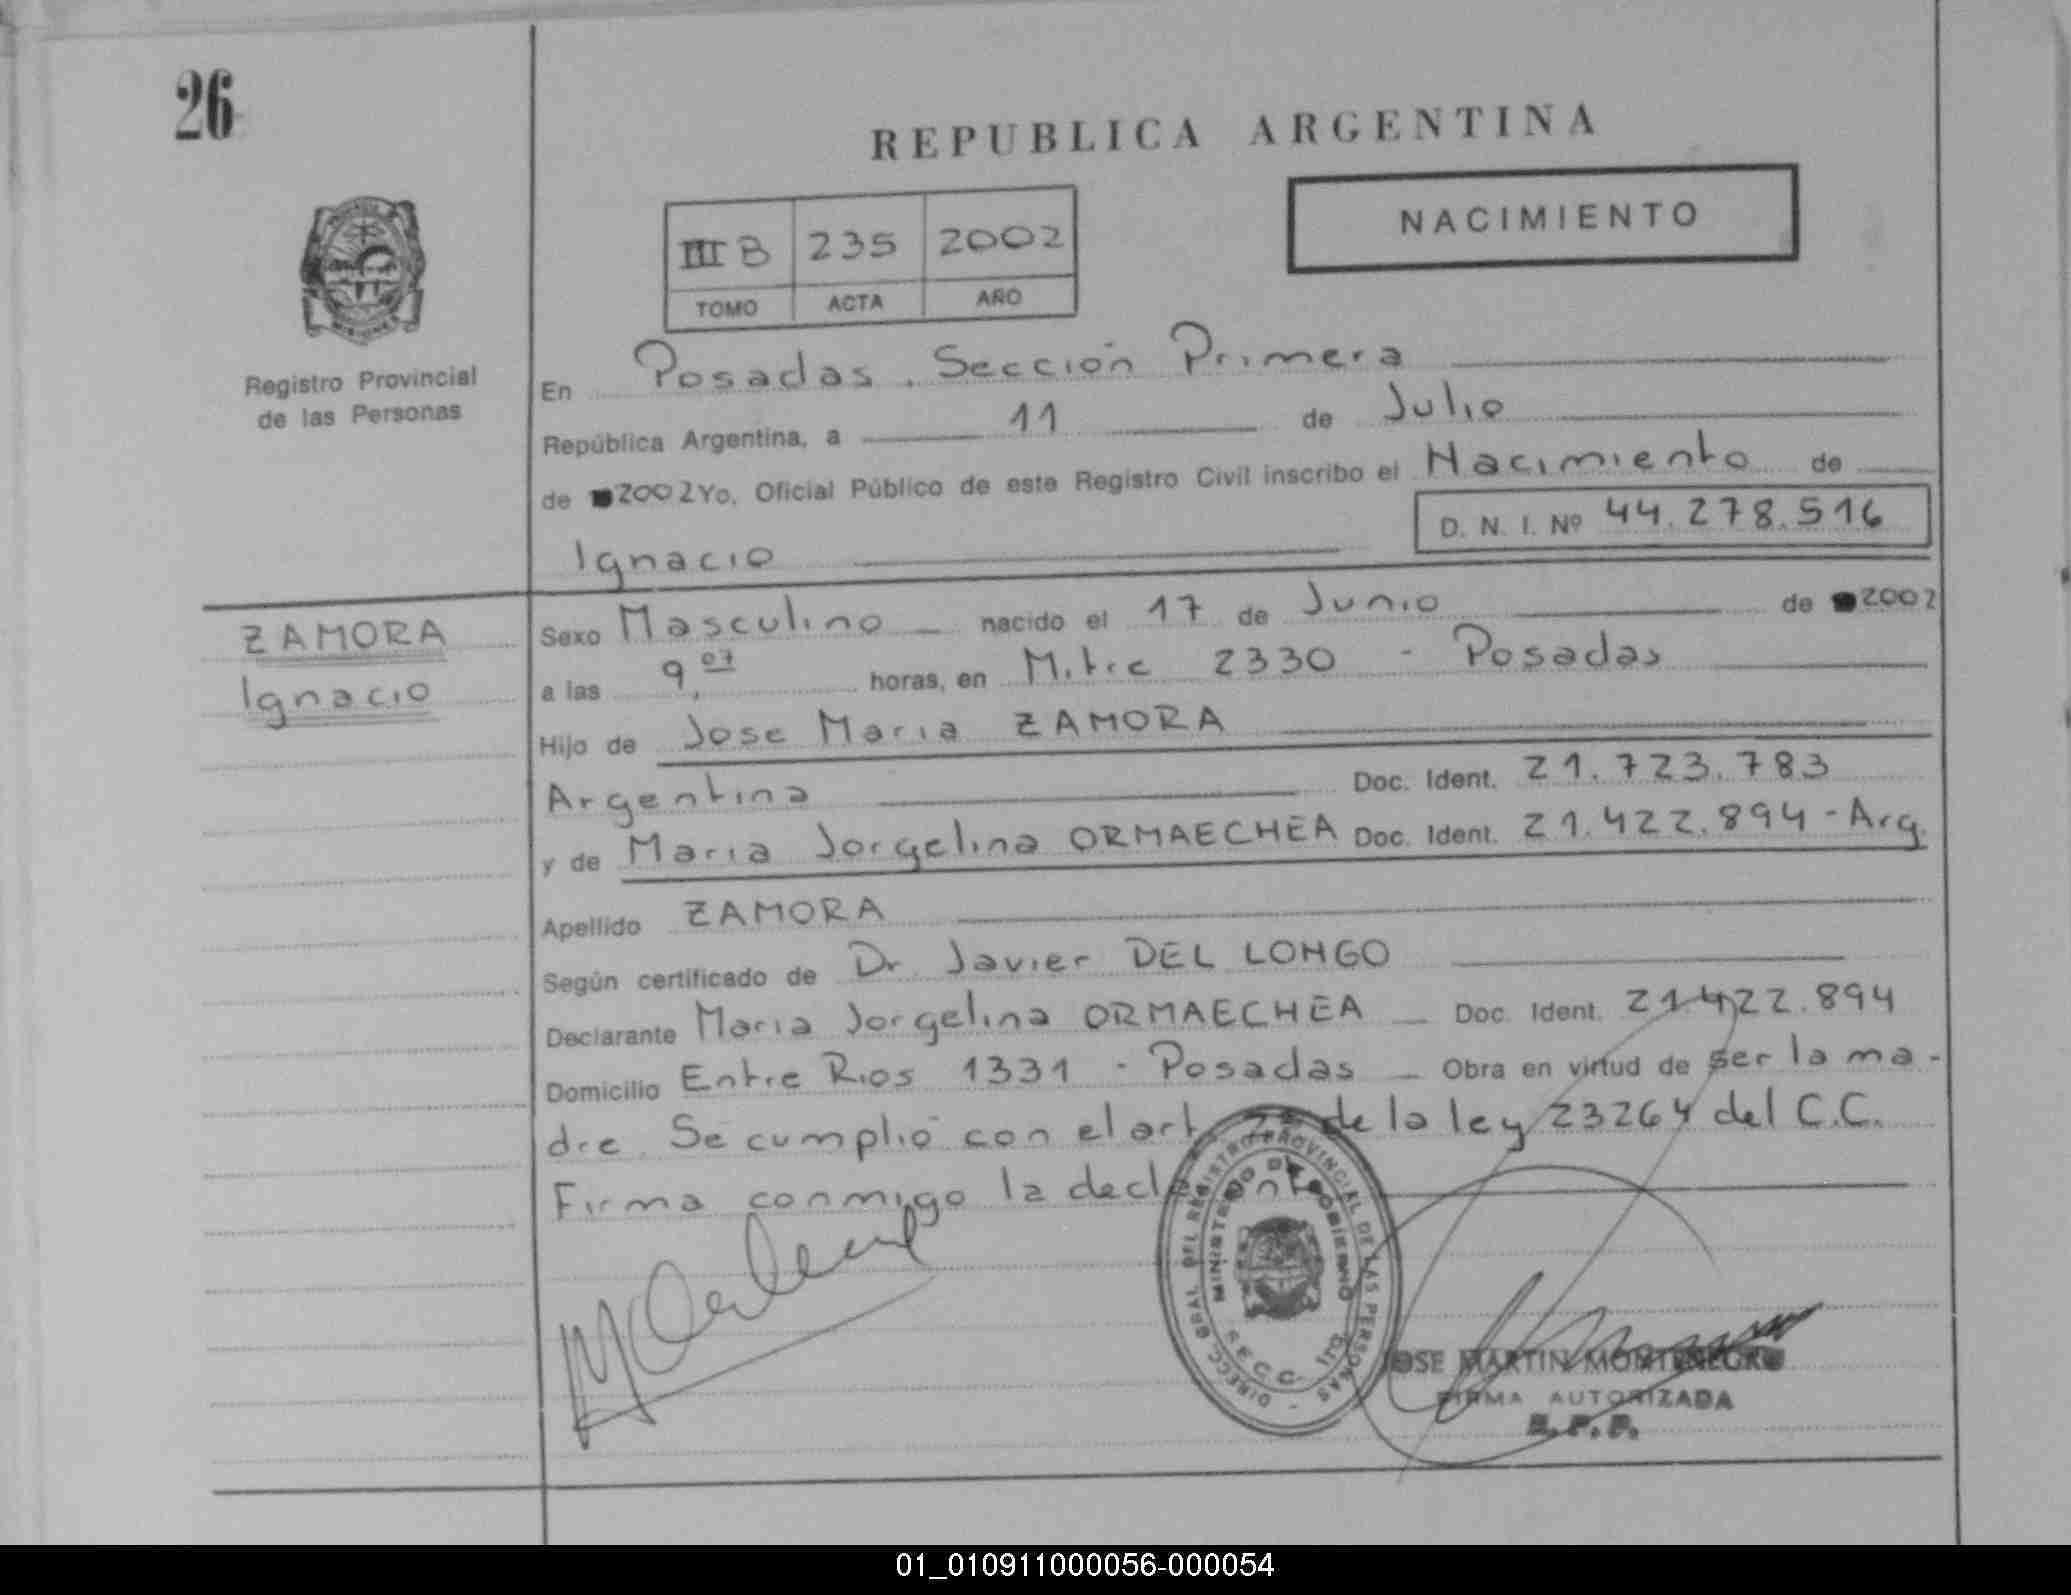 26
REPUBLICA ARGENTINA
NACIMIENTO
III B 235 2002
TOMO ACTA AÑO
MISIONES
Registro Provincial
de las Personas
En Posadas. Sección Primera
República Argentina, a 11 de Julio
de 2002 Yo, Oficial Público de este Registro Civil inscribo el Nacimiento de
D. N. I. Nº 44.278.516
Ignacio
ZAMORA
Ignacio
Sexo Masculino nacido el 17 de Junio de 2002
a las 9,07 horas, en Mitre 2330 - Posadas
Hijo de Jose Maria ZAMORA
Argentina Doc. Ident. 21.723.783
y de Maria Jorgelina ORMAECHEA Doc. Ident. 21.422.894 - Arg.
Apellido ZAMORA
Según certificado de Dr. Javier DEL LONGO
Declarante Maria Jorgelina ORMAECHEA Doc. Ident. 21.422.894
Domicilio Entre Rios 1331 - Posadas Obra en virtud de ser la ma-
dre. Se cumplió con el art. 2º de la ley 23264 del C.C.
Firma conmigo la declarante
DIRECC. GRAL. DEL REGISTRO PROVINCIAL DE LAS PERSONAS
MINISTERIO DE GOBIERNO
SECC. 1ra
JOSE MARTIN MONTENEGRO
FIRMA AUTORIZADA
R.P.P.
01_010911000056-000054